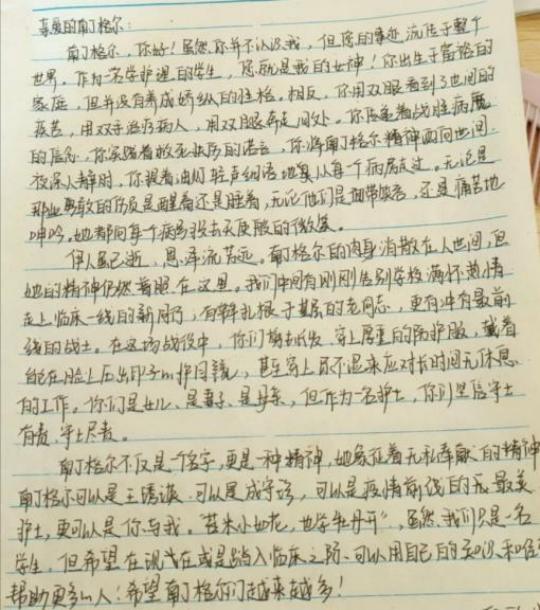 亲爱的南丁格尔:
南丁格尔,你好!虽然你并不认识我,但您的事迹流传于整个
世界。作为一名学护理的学生,您就是我的女神!你出生于富裕的
家庭,但并没有养成娇纵的性格。相反,你用双眼看到了世间的
疾苦,用双手治疗病人,用双腿奔走间处。你传递着战胜病魔
的信念,你实践着救死扶伤的诺言,你将南丁格尔精神面向世间。
夜深人静时,你提着油灯轻声细语地莫从每个病房走过。无论是
那些勇敢的伤员是醒着还是睡着,无论他们是面带笑容,还是痛苦地
呻吟。她都向每个病房投去天使般的微笑。
伊人虽已逝,恩泽流芳远。南丁格尔的肉身消散在人世间,但
她的精神仍然着眼在这里。我们中间有刚刚告别学校满怀激情
走上临床一线的新同行,有群扎根于基层的老同志,更有冲在最前
线的战士。在这场战役中,你们剪去长发,穿上厚重的防护服,戴着
能在脸上压出印子的护目镜,甚至穿上尿不湿来应对长时间无休息
的工作。你们是女儿、是妻子、是母亲,但作为一名护士,你们坚信守土
有责,守土尽责。
南丁格尔不仅是一个名字,更是一种精神,她象征着无私奉献的精神
南丁格尔可以是王琇瑛,可以是成守珍,可以是疫情前线的最美
护士,更可以是你与我。“苔米小如花,也学牡丹开”,虽然我们只是一名
学生,但希望在现在或是踏入临床之际,可以用自己的知识和
帮助更多的人!希望南丁格尔们越来越多!